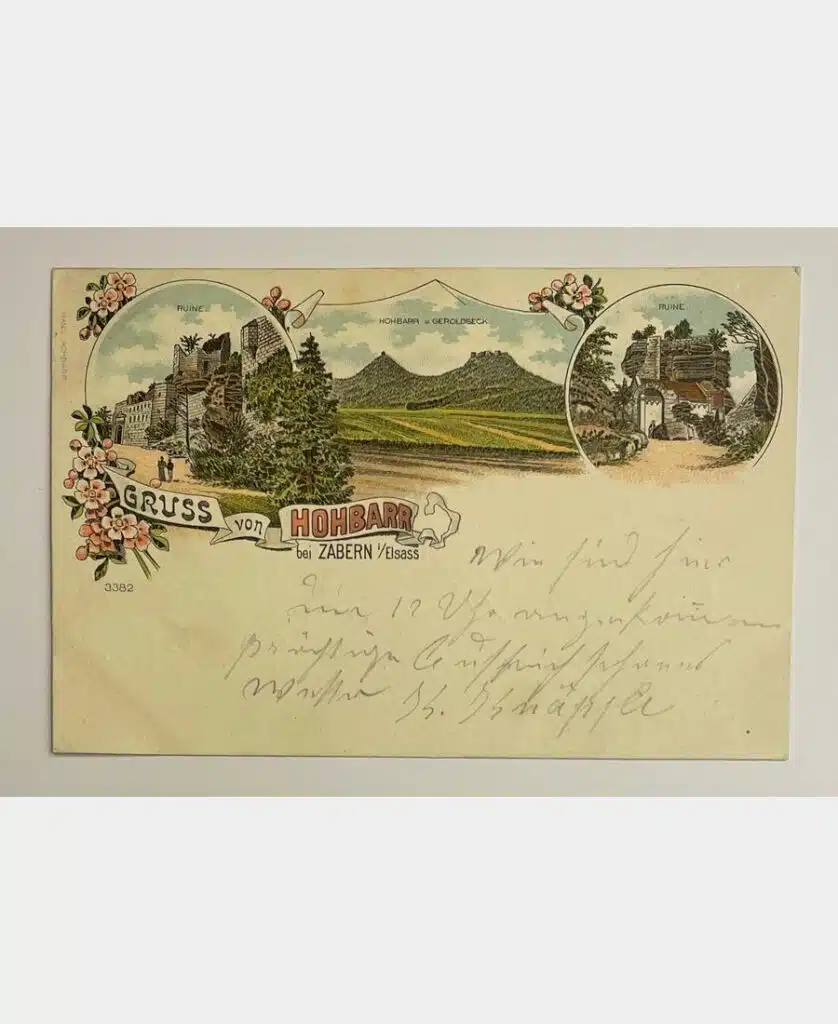 RUINE.
HOHBARR u. GEROLDSECK.
RUINE.
GRUSS von HOHBARR
bei ZABERN i/Elsass
3382
Wir sind hier
um 12 Uhr angekommen
prächtige Aussicht schönes
Wetter